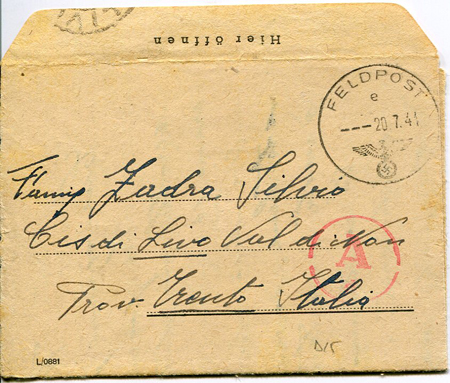 Hier öffnen
FELDPOST
e
--- 20.7.44
Famig Zadra Silvio
Cis di Livo Val di Non
A
Prov. Trento Italia
L/0881